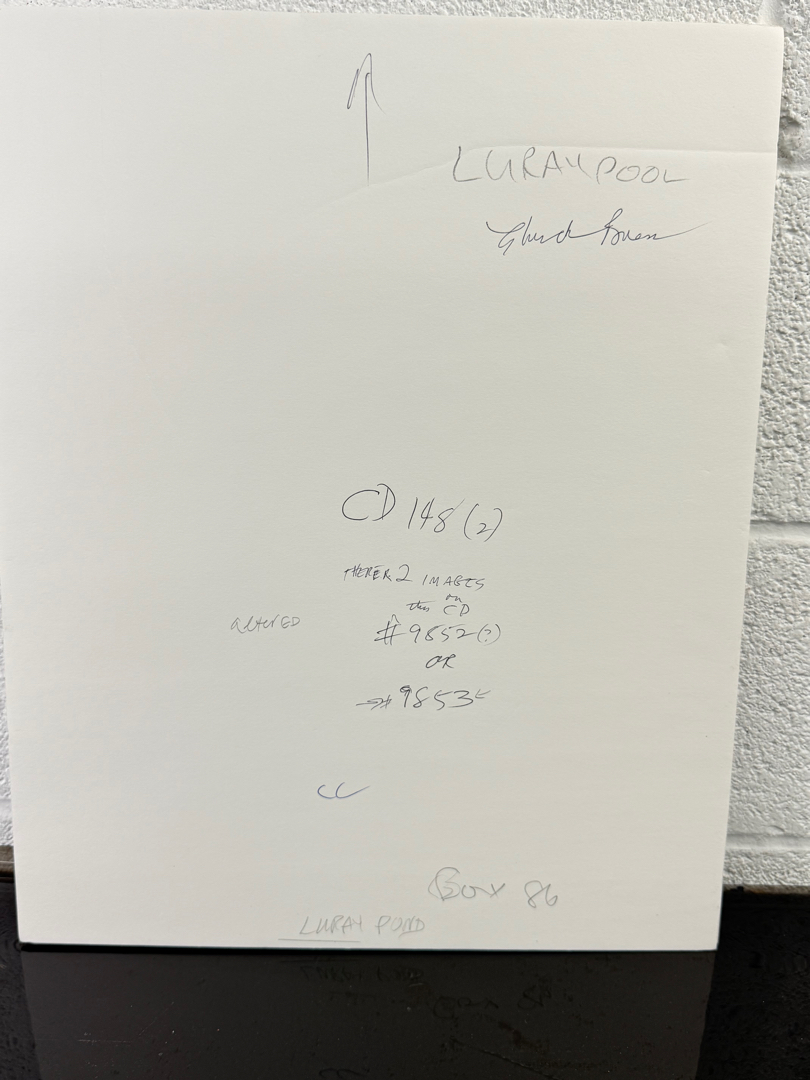 LURAY POOL
CD 148 (2)
THERER 2 IMAGES
on
this CD
altered
# 9852 (?)
OR
# 9853
CC
Box 86
LURAY POND